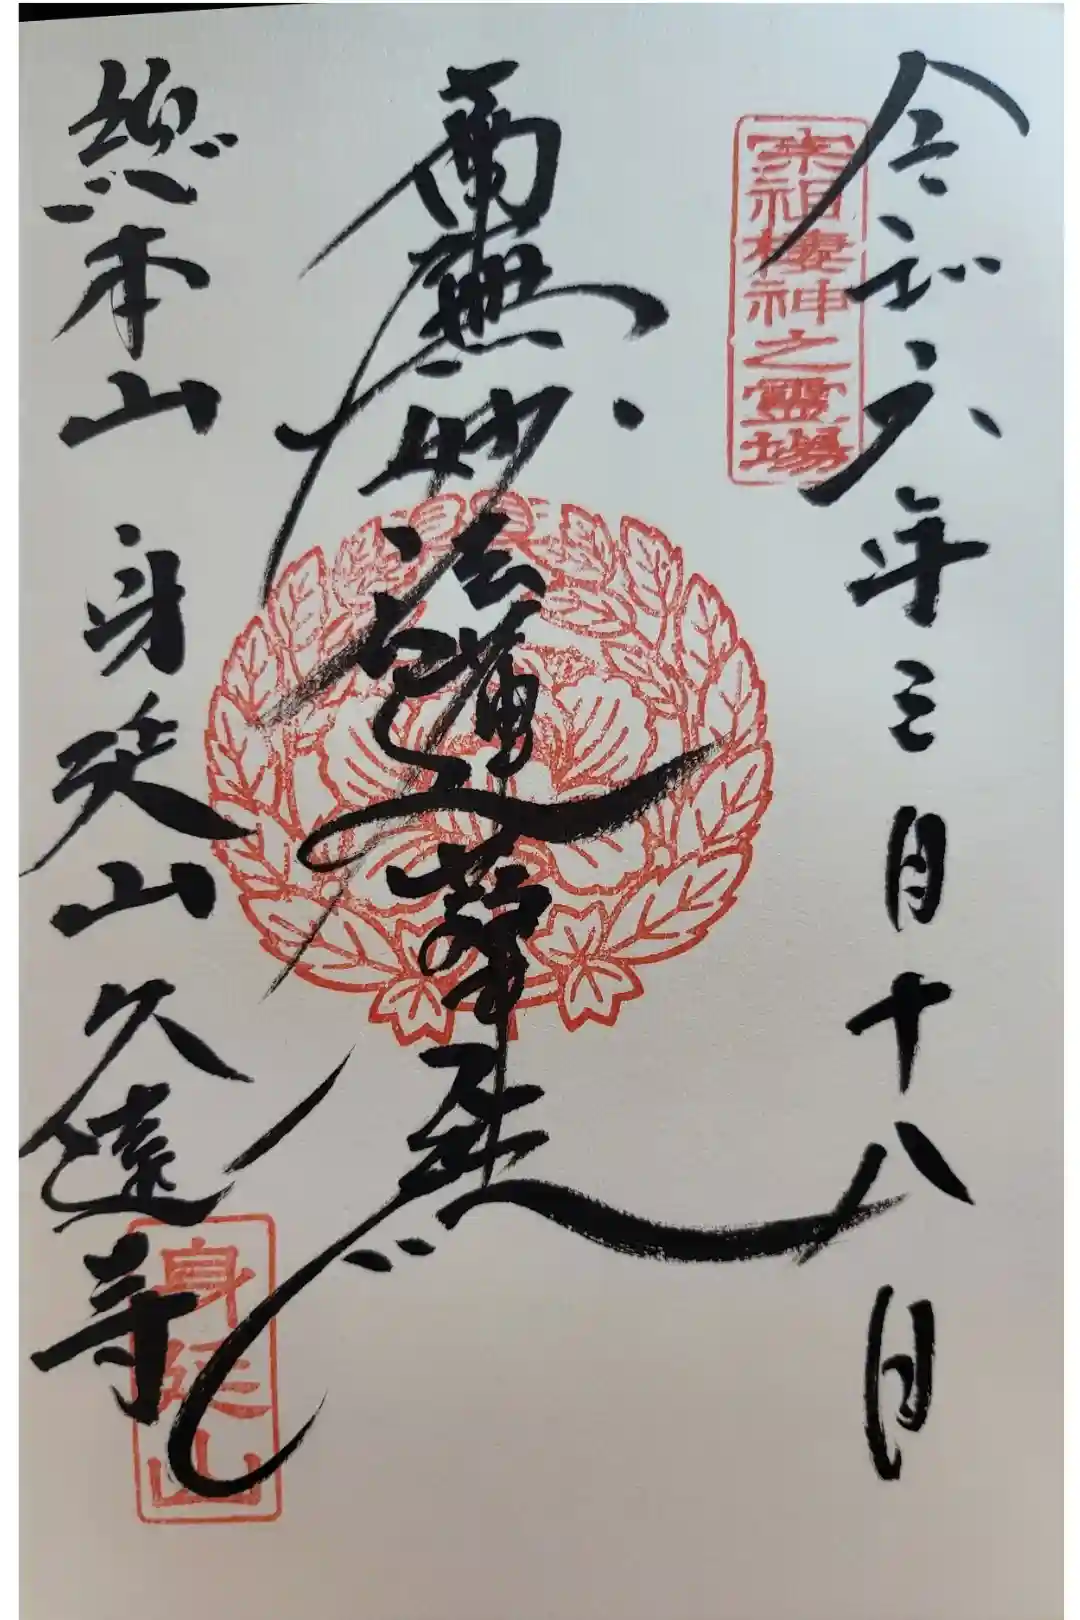 令和六年三月十八日
宗祖棲神之霊場
南無妙法蓮華経
總本山 身延山 久遠寺
身延山